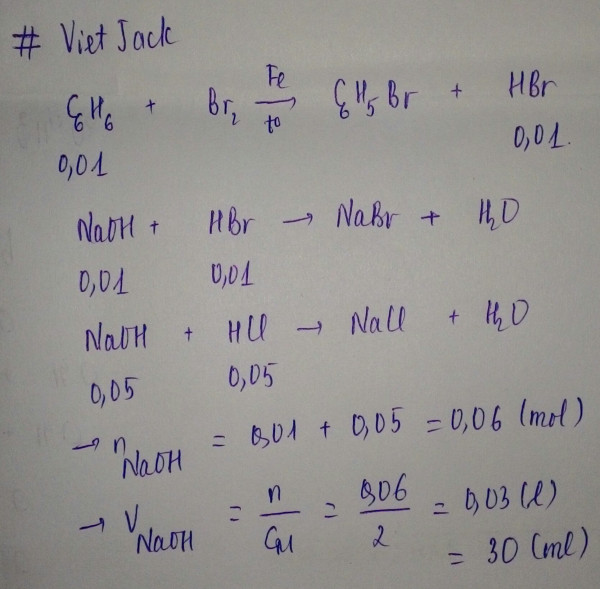 # VietJack
C6H6 + Br2 Fe → t° C6H5Br + HBr
0,01 0,01.
NaOH + HBr → NaBr + H2O
0,01 0,01
NaOH + HCl → NaCl + H2O
0,05 0,05
→ nNaOH = 0,01 + 0,05 = 0,06 (mol)
→ VNaOH = n/CM = 0,06/2 = 0,03 (l)
= 30 (ml)